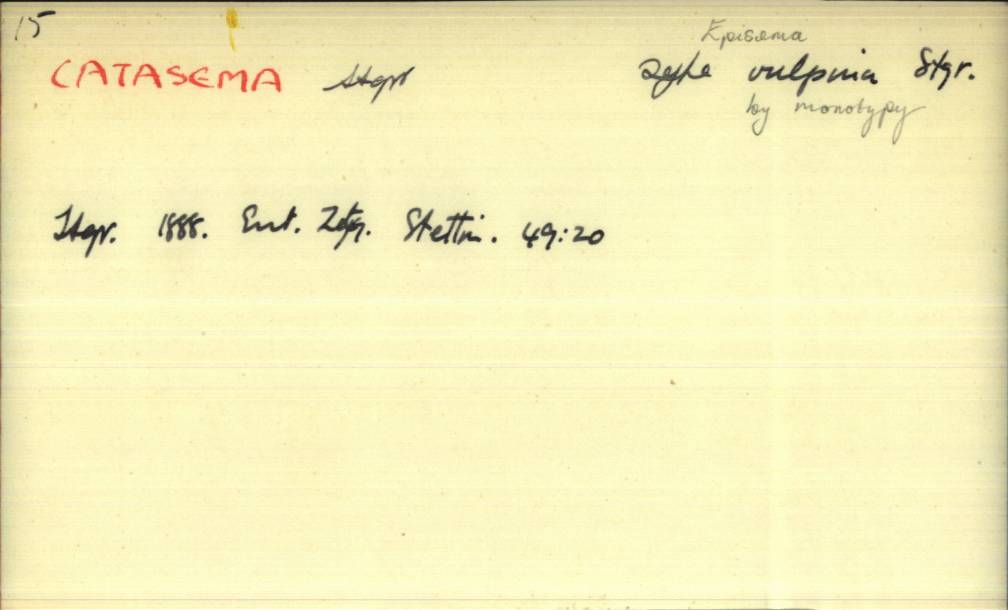 15
Episema
CATASEMA Stgr type vulpina Stgr.
by monotypy
Stgr. 1888. Ent. Ztg. Stettin. 49:20